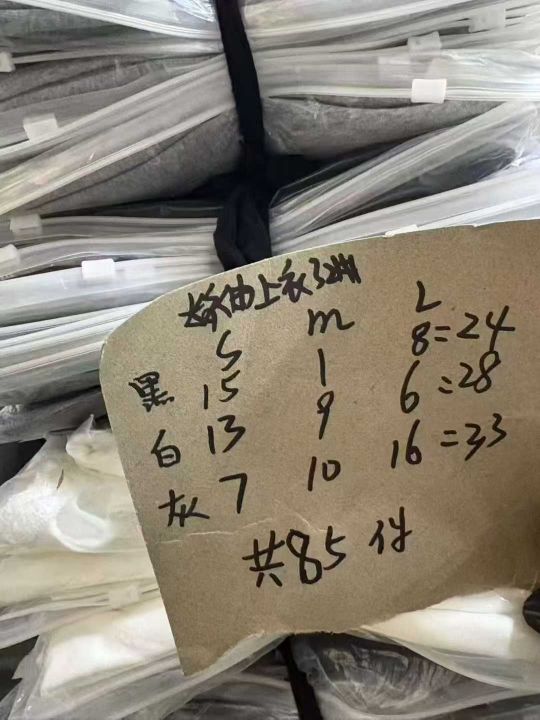 袖上衣
S M L
黑 15 1 8=24
白 13 9 6=28
灰 7 10 16=33
共85件